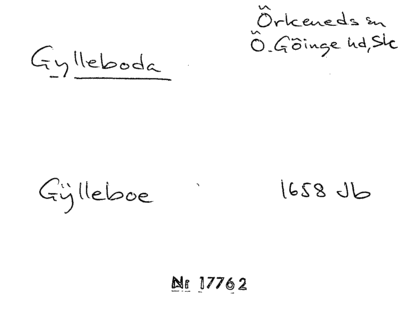 Örkeneds sn
Ö. Göinge hd, Sk
Gylleboda
Gÿlleboe
1658 Jb
Nr 17762